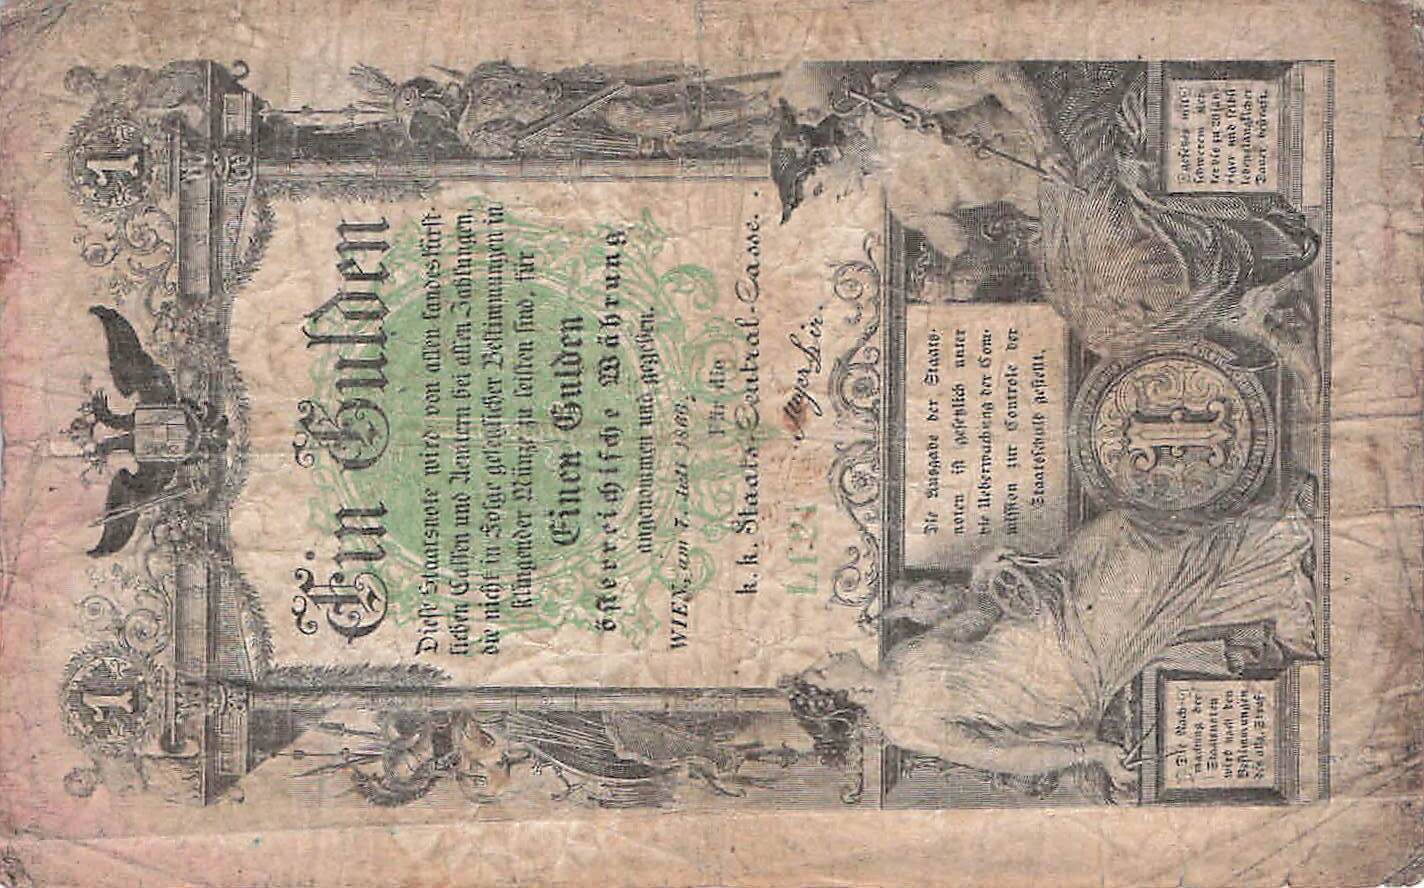 1
1
Ein Gulden
Diese Staatsnote wird von allen landesfürst-
lichen Cassen und Aemtern bei allen Zahlungen,
die nicht in Folge gesetzlicher Bestimmungen in
klingender Münze zu leisten sind, für
Einen Gulden
österreichische Währung
angenommen und gegeben.
WIEN, am 7. Juli 1866.
Für die
k. k. Staats-Central-Casse.
Die Ausgabe der Staats-
noten ist gesetzlich unter
die Ueberwachung der Com-
mission zur Controle der
Staatsschuld gestellt.
1
Die Nach-
machung der
Staatsnoten
wird nach den
Bestimmungen
des allg. Straf-
gesetzes mit
schwerem Ker-
ker bis zu 20jäh-
riger und selbst
lebenslänglicher
Dauer bestraft.